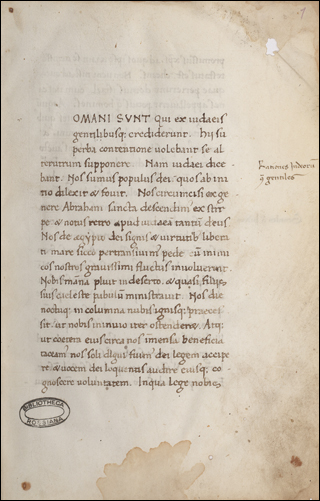 OMANI SVNT Qui ex iudaeis
gentilibusq; crediderunt. Hij su
perba contentione volebant se al
terutrum supponere. Nam iudaei dice
bant. Nos sumus populus dei quos ab ini
tio dilexit & fouit. Nos circumcisi ex ge
nere Abraham sancta descendim' ex stir
pe & notus retro apud iudaeā tantū deus
Nos de aegypto dei signis & virtutib' libera
ti mare sicco pertransiuim' pede cū inimi
cos nostros grauissimi fluctus inuoluerent.
Nobis māna pluit in deserto. & quasi filijs
suis caeleste pabulū ministrauit. Nos die
noctuq; in columna nubis ignisq; praeces
sit. ut nobis in inuio iter ostenderet. Atq;
ut caetera eius circa nos īmensa beneficia
taceam. nos soli digni fuim' dei legem accipe
re. & vocem dei loquentis audire eiusq; co
gnoscere voluntatem. In qua Lege nobis
gentiles
BIBLIOTHECA